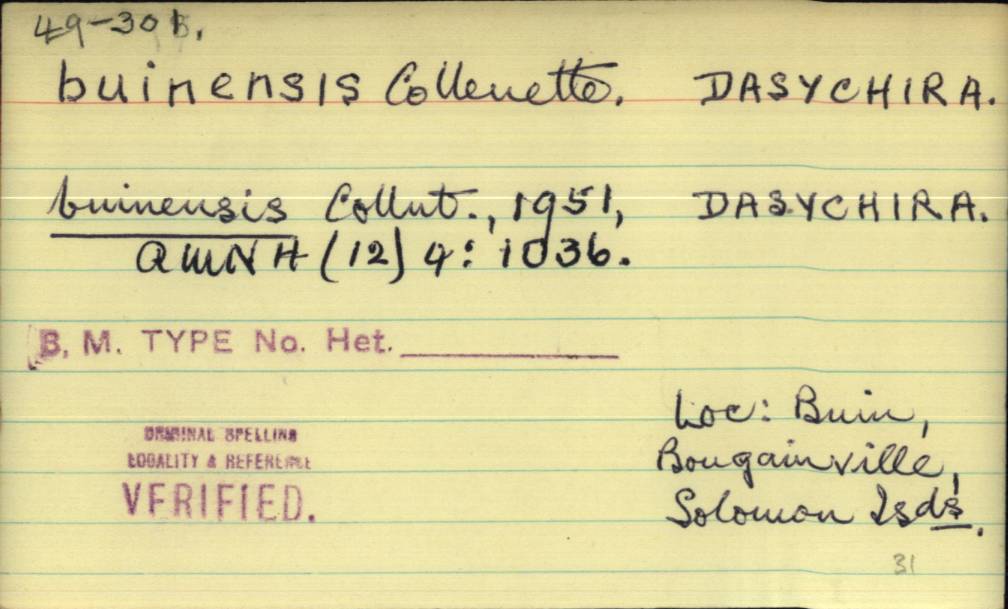 49-30b.
buinensis Collenette. DASYCHIRA.
buinensis Collnt., 1951, DASYCHIRA.
AMNH (12) 4: 1036.
B. M. TYPE No. Het.
Loc: Buin,
Bougainville,
Solomon Isds.
ORIGINAL SPELLING
LOCALITY & REFERENCE
VERIFIED.
31